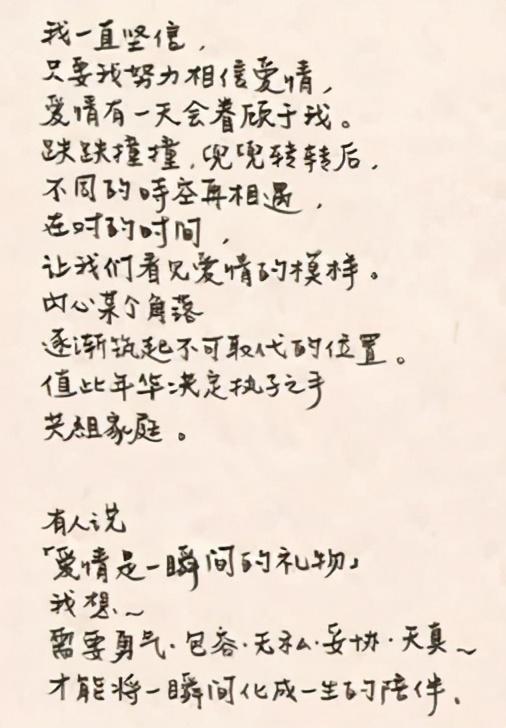 我一直坚信，
只要我努力相信爱情，
爱情有一天会眷顾于我。
跌跌撞撞，兜兜转转后，
不同的時空再相遇，
在对的时间，
让我们看见爱情的模样。
内心某个角落
逐渐筑起不可取代的位置。
值此年华决定执子之手
共組家庭。
有人说
「爱情是一瞬间的礼物」
我想~
需要勇气·包容·无私·妥协·天真~
才能将一瞬间化成一生的陪伴.